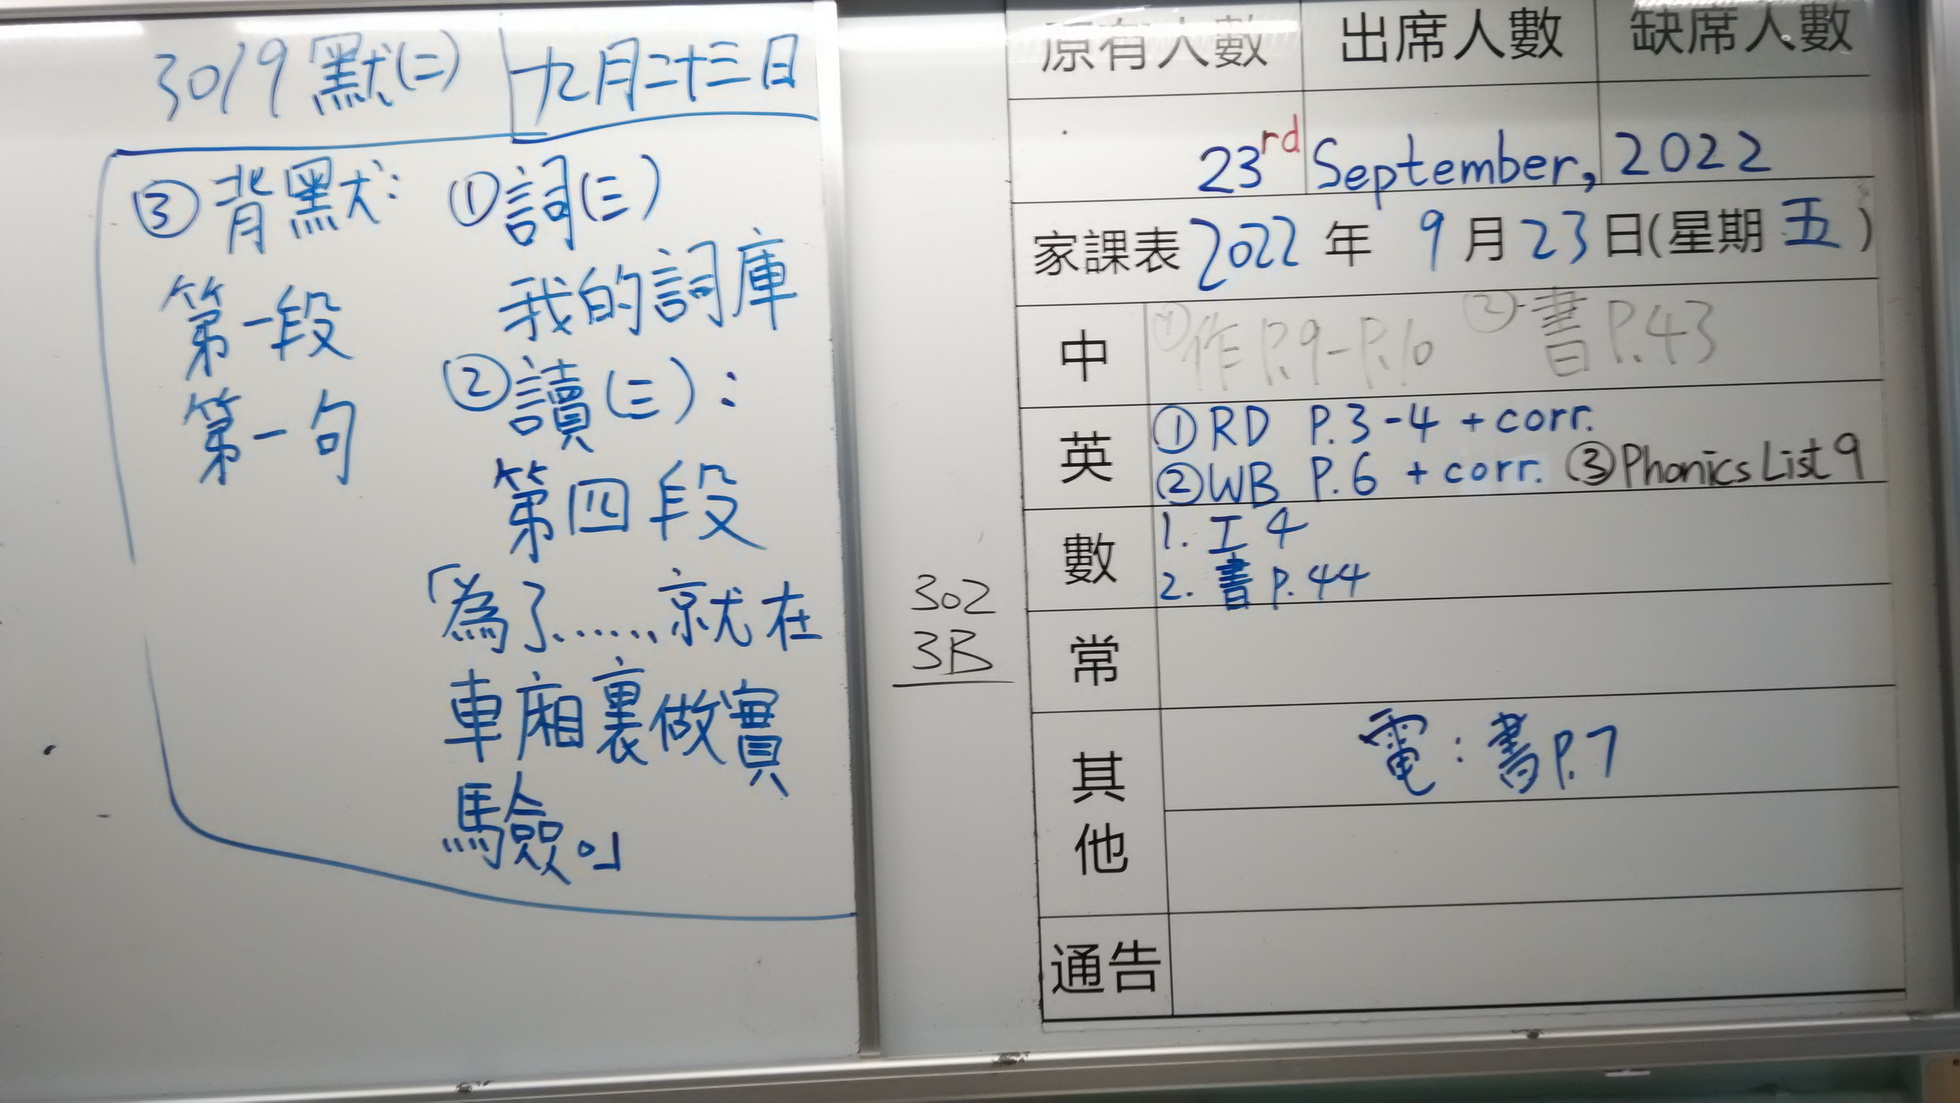 30/9 默(二)
③背默:
第一段
第一句
①詞(三)
我的詞庫
②讀(三):
第四段
「為了……就在
車廂裏做實
驗。」
九月二十三日
302
3B
原有人數 出席人數 缺席人數
23rd September, 2022
家課表 2022 年 9 月 23 日(星期 五)
中 ①作P.9-P.10 ②書P.43
英 ①RD P.3-4 + corr.
②WB P.6 + corr. ③Phonics List 9
數 1. 工 4
2. 書 P.44
常
其他 電:書P.7
通告